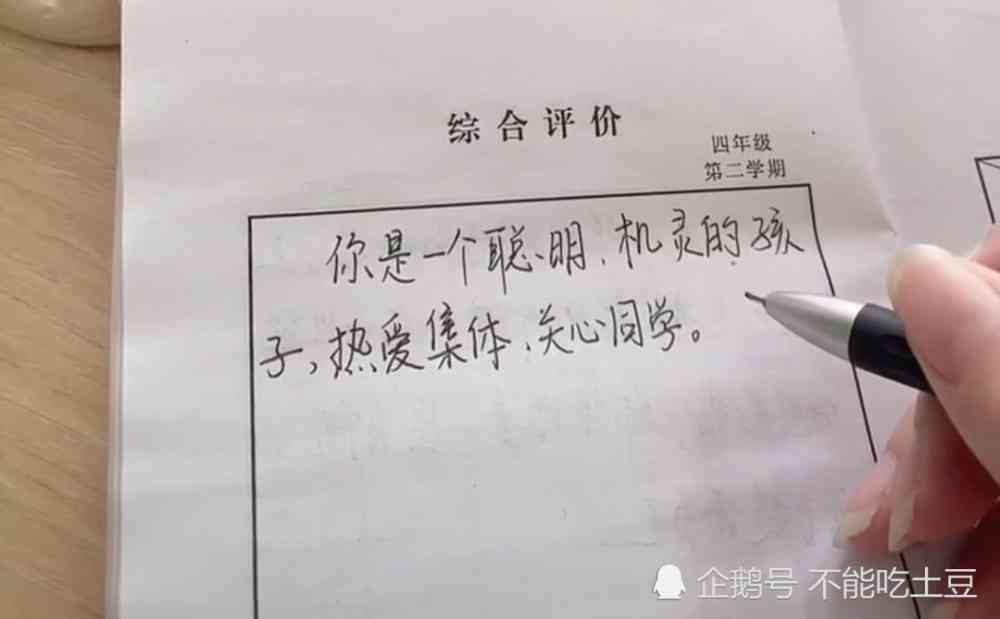 综合评价
四年级
第二学期
你是一个聪明、机灵的孩
子，热爱集体、关心同学。
企鹅号 不能吃土豆